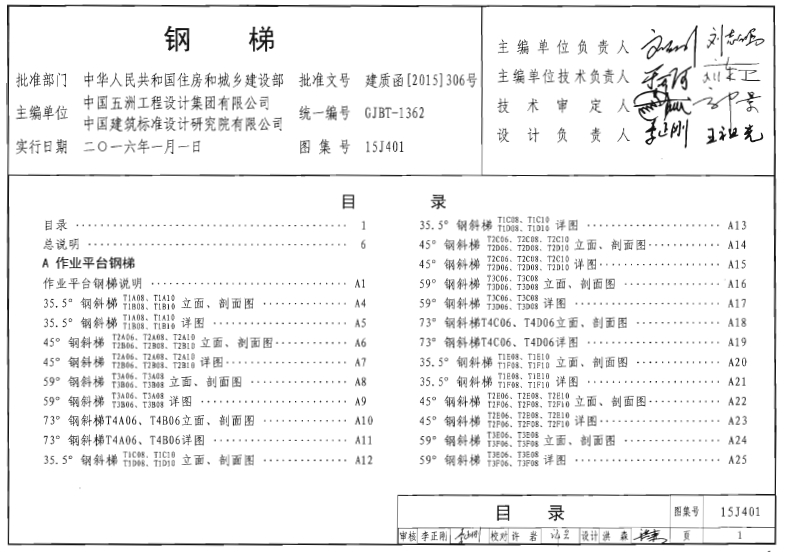 钢 梯
批准部门 中华人民共和国住房和城乡建设部 批准文号 建质函[2015]306号
主编单位 中国五洲工程设计集团有限公司
中国建筑标准设计研究院有限公司 统一编号 GJBT-1362
实行日期 二〇一六年一月一日 图集号 15J401
主编单位负责人
主编单位技术负责人
技术审定人
设计负责人
目 录
目录 1
总说明 6
A 作业平台钢梯
作业平台钢梯说明 A1
35.5° 钢斜梯 T1A08、T1A10 T1B08、T1B10 立面、剖面图 A4
35.5° 钢斜梯 T1A08、T1A10 T1B08、T1B10 详图 A5
45° 钢斜梯 T2A06、T2A08、T2A10 T2B06、T2B08、T2B10 立面、剖面图 A6
45° 钢斜梯 T2A06、T2A08、T2A10 T2B06、T2B08、T2B10 详图 A7
59° 钢斜梯 T3A06、T3A08 T3B06、T3B08 立面、剖面图 A8
59° 钢斜梯 T3A06、T3A08 T3B06、T3B08 详图 A9
73° 钢斜梯T4A06、T4B06立面、剖面图 A10
73° 钢斜梯T4A06、T4B06详图 A11
35.5° 钢斜梯 T1C08、T1C10 T1D08、T1D10 立面、剖面图 A12
35.5° 钢斜梯 T1C08、T1C10 T1D08、T1D10 详图 A13
45° 钢斜梯 T2C06、T2C08、T2C10 T2D06、T2D08、T2D10 立面、剖面图 A14
45° 钢斜梯 T2C06、T2C08、T2C10 T2D06、T2D08、T2D10 详图 A15
59° 钢斜梯 T3C06、T3C08 T3D06、T3D08 立面、剖面图 A16
59° 钢斜梯 T3C06、T3C08 T3D06、T3D08 详图 A17
73° 钢斜梯T4C06、T4D06立面、剖面图 A18
73° 钢斜梯T4C06、T4D06详图 A19
35.5° 钢斜梯 T1E08、T1E10 T1F08、T1F10 立面、剖面图 A20
35.5° 钢斜梯 T1E08、T1E10 T1F08、T1F10 详图 A21
45° 钢斜梯 T2E06、T2E08、T2E10 T2F06、T2F08、T2F10 立面、剖面图 A22
45° 钢斜梯 T2E06、T2E08、T2E10 T2F06、T2F08、T2F10 详图 A23
59° 钢斜梯 T3E06、T3E08 T3F06、T3F08 立面、剖面图 A24
59° 钢斜梯 T3E06、T3E08 T3F06、T3F08 详图 A25
目 录 图集号 15J401
审核 李正刚 校对 许岩 设计 洪森 页 1